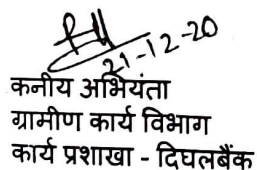 21-12-20
कनीय अभियंता
ग्रामीण कार्य विभाग
कार्य प्रशाखा - दिघलबैंक